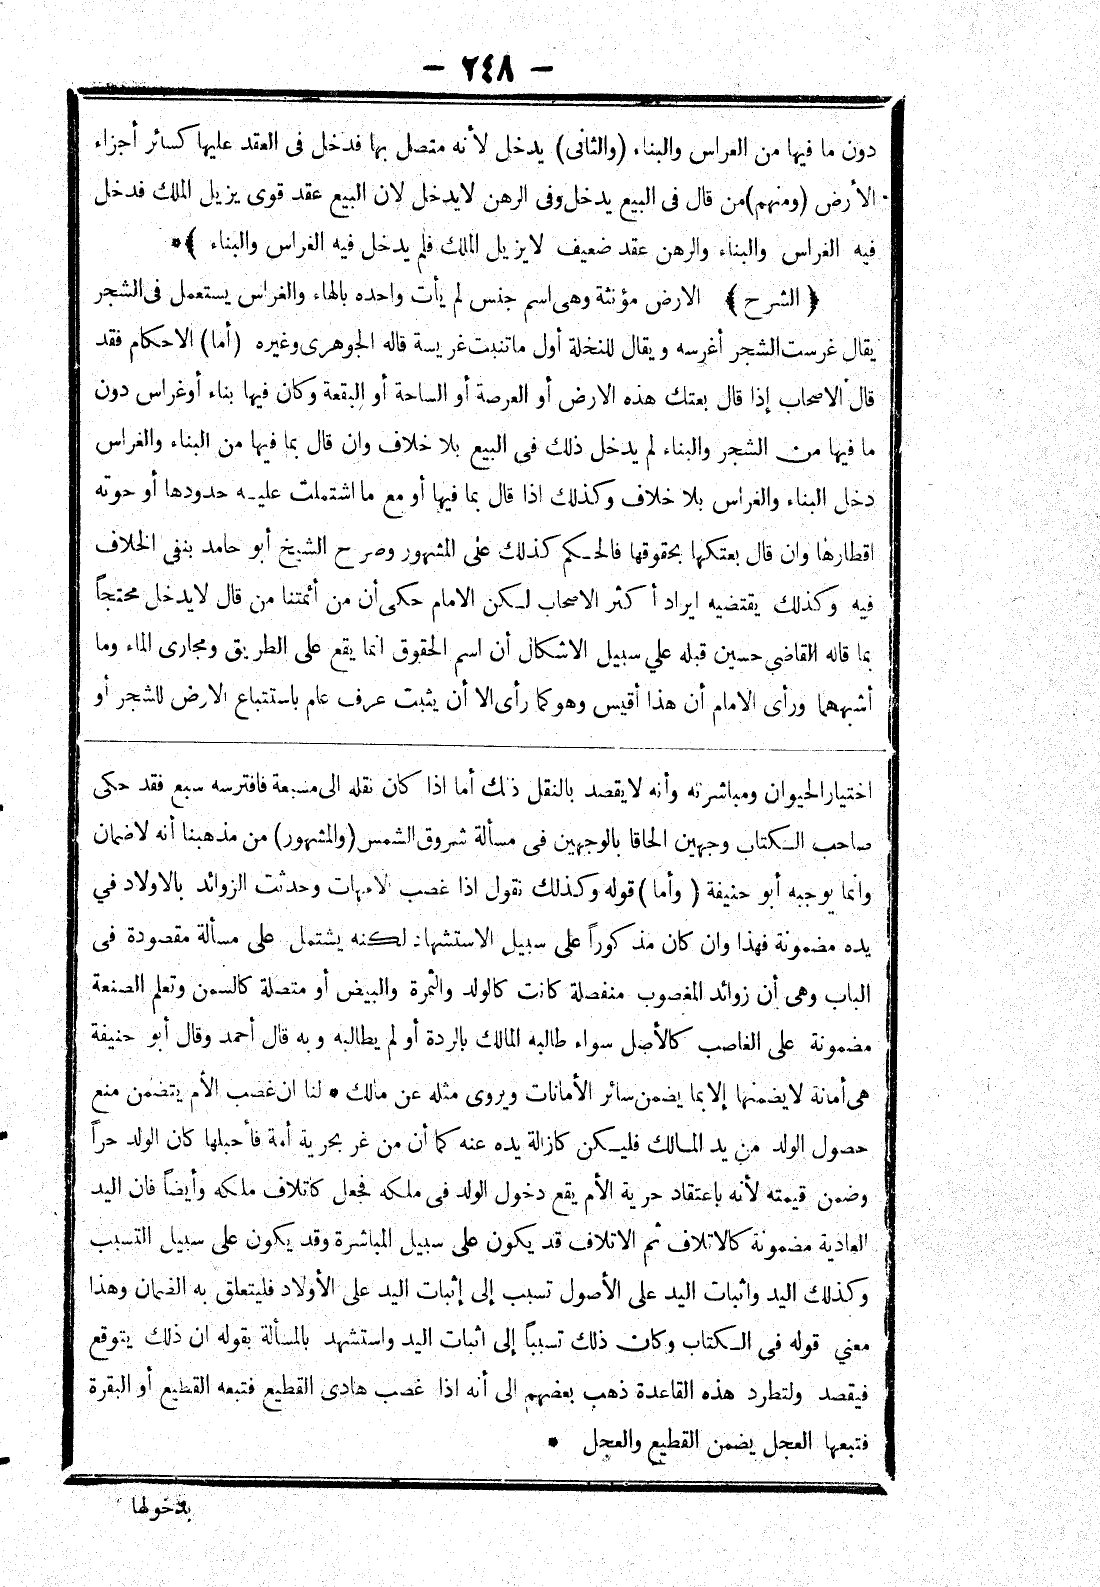 - ٢٤٨ -
دون ما فيها من الغراس والبناء (والثانى) يدخل لأنه متصل بها فدخل فى العقد عليها كسائر أجزاء
الأرض (ومنهم) من قال فى البيع يدخل وفى الرهن لايدخل لان البيع عقد قوى يزيل الملك فدخل
فيه الغراس والبناء والرهن عقد ضعيف لايزيل الملك فلم يدخل فيه الغراس والبناء ﴾ *
﴿ الشرح ﴾ الارض مؤنثة وهى اسم جنس لم يأت واحده بالهاء والغراس يستعمل فى الشجر
يقال غرست الشجر أغرسه ويقال للنخلة أول ماتنبت غريسة قاله الجوهرى وغيره (أما) الاحكام فقد
قال الاصحاب إذا قال بعتك هذه الارض أو العرصة أو الساحة أو البقعة وكان فيها بناء أوغراس دون
ما فيها من الشجر والبناء لم يدخل ذلك فى البيع بلا خلاف وان قال بما فيها من البناء والغراس
دخل البناء والغراس بلا خلاف وكذلك اذا قال بما فيها أو مع ما اشتملت عليه حدودها أو حوته
اقطارها وان قال بعتكها بحقوقها فالحكم كذلك على المشهور وصرح الشيخ أبو حامد بنفى الخلاف
فيه وكذلك يقتضيه ايراد أكثر الاصحاب لكن الامام حكى أن من أئمتنا من قال لايدخل محتجاً
بما قاله القاضي حسين قبله علي سبيل الاشكال أن اسم الحقوق انما يقع على الطريق ومجارى الماء وما
أشبههما ورأى الامام أن هذا أقيس وهو كما رأى الا أن يثبت عرف عام باستتباع الارض للشجر أو
اختيار الحيوان ومباشرته وأنه لايقصد بالنقل ذلك أما اذا كان نقله الى مسبعة فافترسه سبع فقد حكى
صاحب الكتاب وجهين الحاقا بالوجهين فى مسألة شروق الشمس (والمشهور) من مذهبنا أنه لاضمان
وانما يوجبه أبو حنيفة (وأما) قوله وكذلك نقول اذا غصب الامهات وحدثت الزوائد بالاولاد في
يده مضمونة فهذا وان كان مذكوراً على سبيل الاستشهاد لكنه يشتمل على مسألة مقصودة فى
الباب وهى أن زوائد المغصوب منفصلة كانت كالولد والثمرة والبيض أو متصلة كالسمن وتعلم الصنعة
مضمونة على الغاصب كالأصل سواء طالبه المالك بالردة أو لم يطالبه وبه قال أحمد وقال أبو حنيفة
هى أمانة لايضمنها إلا بما يضمن سائر الأمانات ويروى مثله عن مالك * لنا ان غصب الأم يتضمن منع
حصول الولد من يد المالك فليكن كازالة يده عنه كما أن من غر بحرية أمة فأحبلها كان الولد حراً
وضمن قيمته لأنه باعتقاد حرية الأم يقع دخول الولد فى ملكه فجعل كاتلاف ملكه وأيضاً فان اليد
العادية مضمونة كالاتلاف ثم الاتلاف قد يكون على سبيل المباشرة وقد يكون على سبيل التسبب
وكذلك اليد واثبات اليد على الأصول تسبب إلى إثبات اليد على الأولاد فليتعلق به الضمان وهذا
معني قوله فى الكتاب وكان ذلك تسبباً إلى اثبات اليد واستشهد بالمسألة بقوله ان ذلك يتوقع
فيقصد ولتطرد هذه القاعدة ذهب بعضهم الى أنه اذا غصب هادى القطيع فتبعه القطيع أو البقرة
فتبعها العجل يضمن القطيع والعجل *
بدخولها